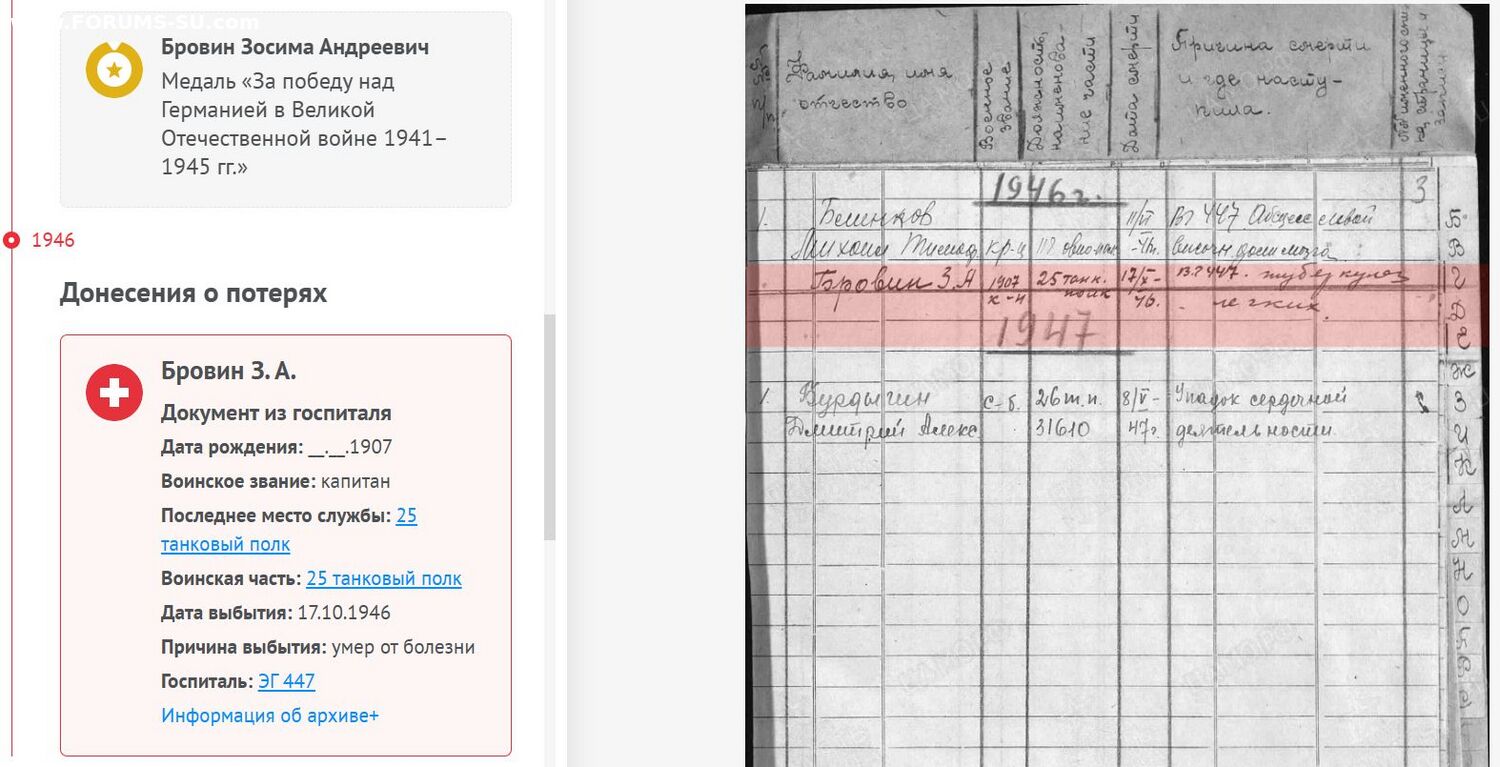 www.FORUMS-SU.com
Бровин Зосима Андреевич
Медаль «За победу над
Германией в Великой
Отечественной войне 1941–
1945 гг.»
1946
Донесения о потерях
Бровин З. А.
Документ из госпиталя
Дата рождения: __.__.1907
Воинское звание: капитан
Последнее место службы: 25
танковый полк
Воинская часть: 25 танковый полк
Дата выбытия: 17.10.1946
Причина выбытия: умер от болезни
Госпиталь: ЭГ 447
Информация об архиве+
Фамилия, имя
отчество
Военное
звание
Должность,
наименова-
ние части
Дата смерти
Причина смерти
и где насту-
пила.
3
1946 г.
1. Белинков 11/VI ВГ 447 Абсцесс левой
Михаил кр-ц височн доли мозга
Бровин З. А 1907 25 танк. 17/X- 447. туберкулез
к-н полк 46. легких.
1947
1. Бурдыгин с-б. 26 т. п. 8/V- Упадок сердечной
Дмитрий Алекс. 31610 47 г. деятельности
Б
В
Г
Д
Е
Ж
З
И
К
Л
М
Н
О